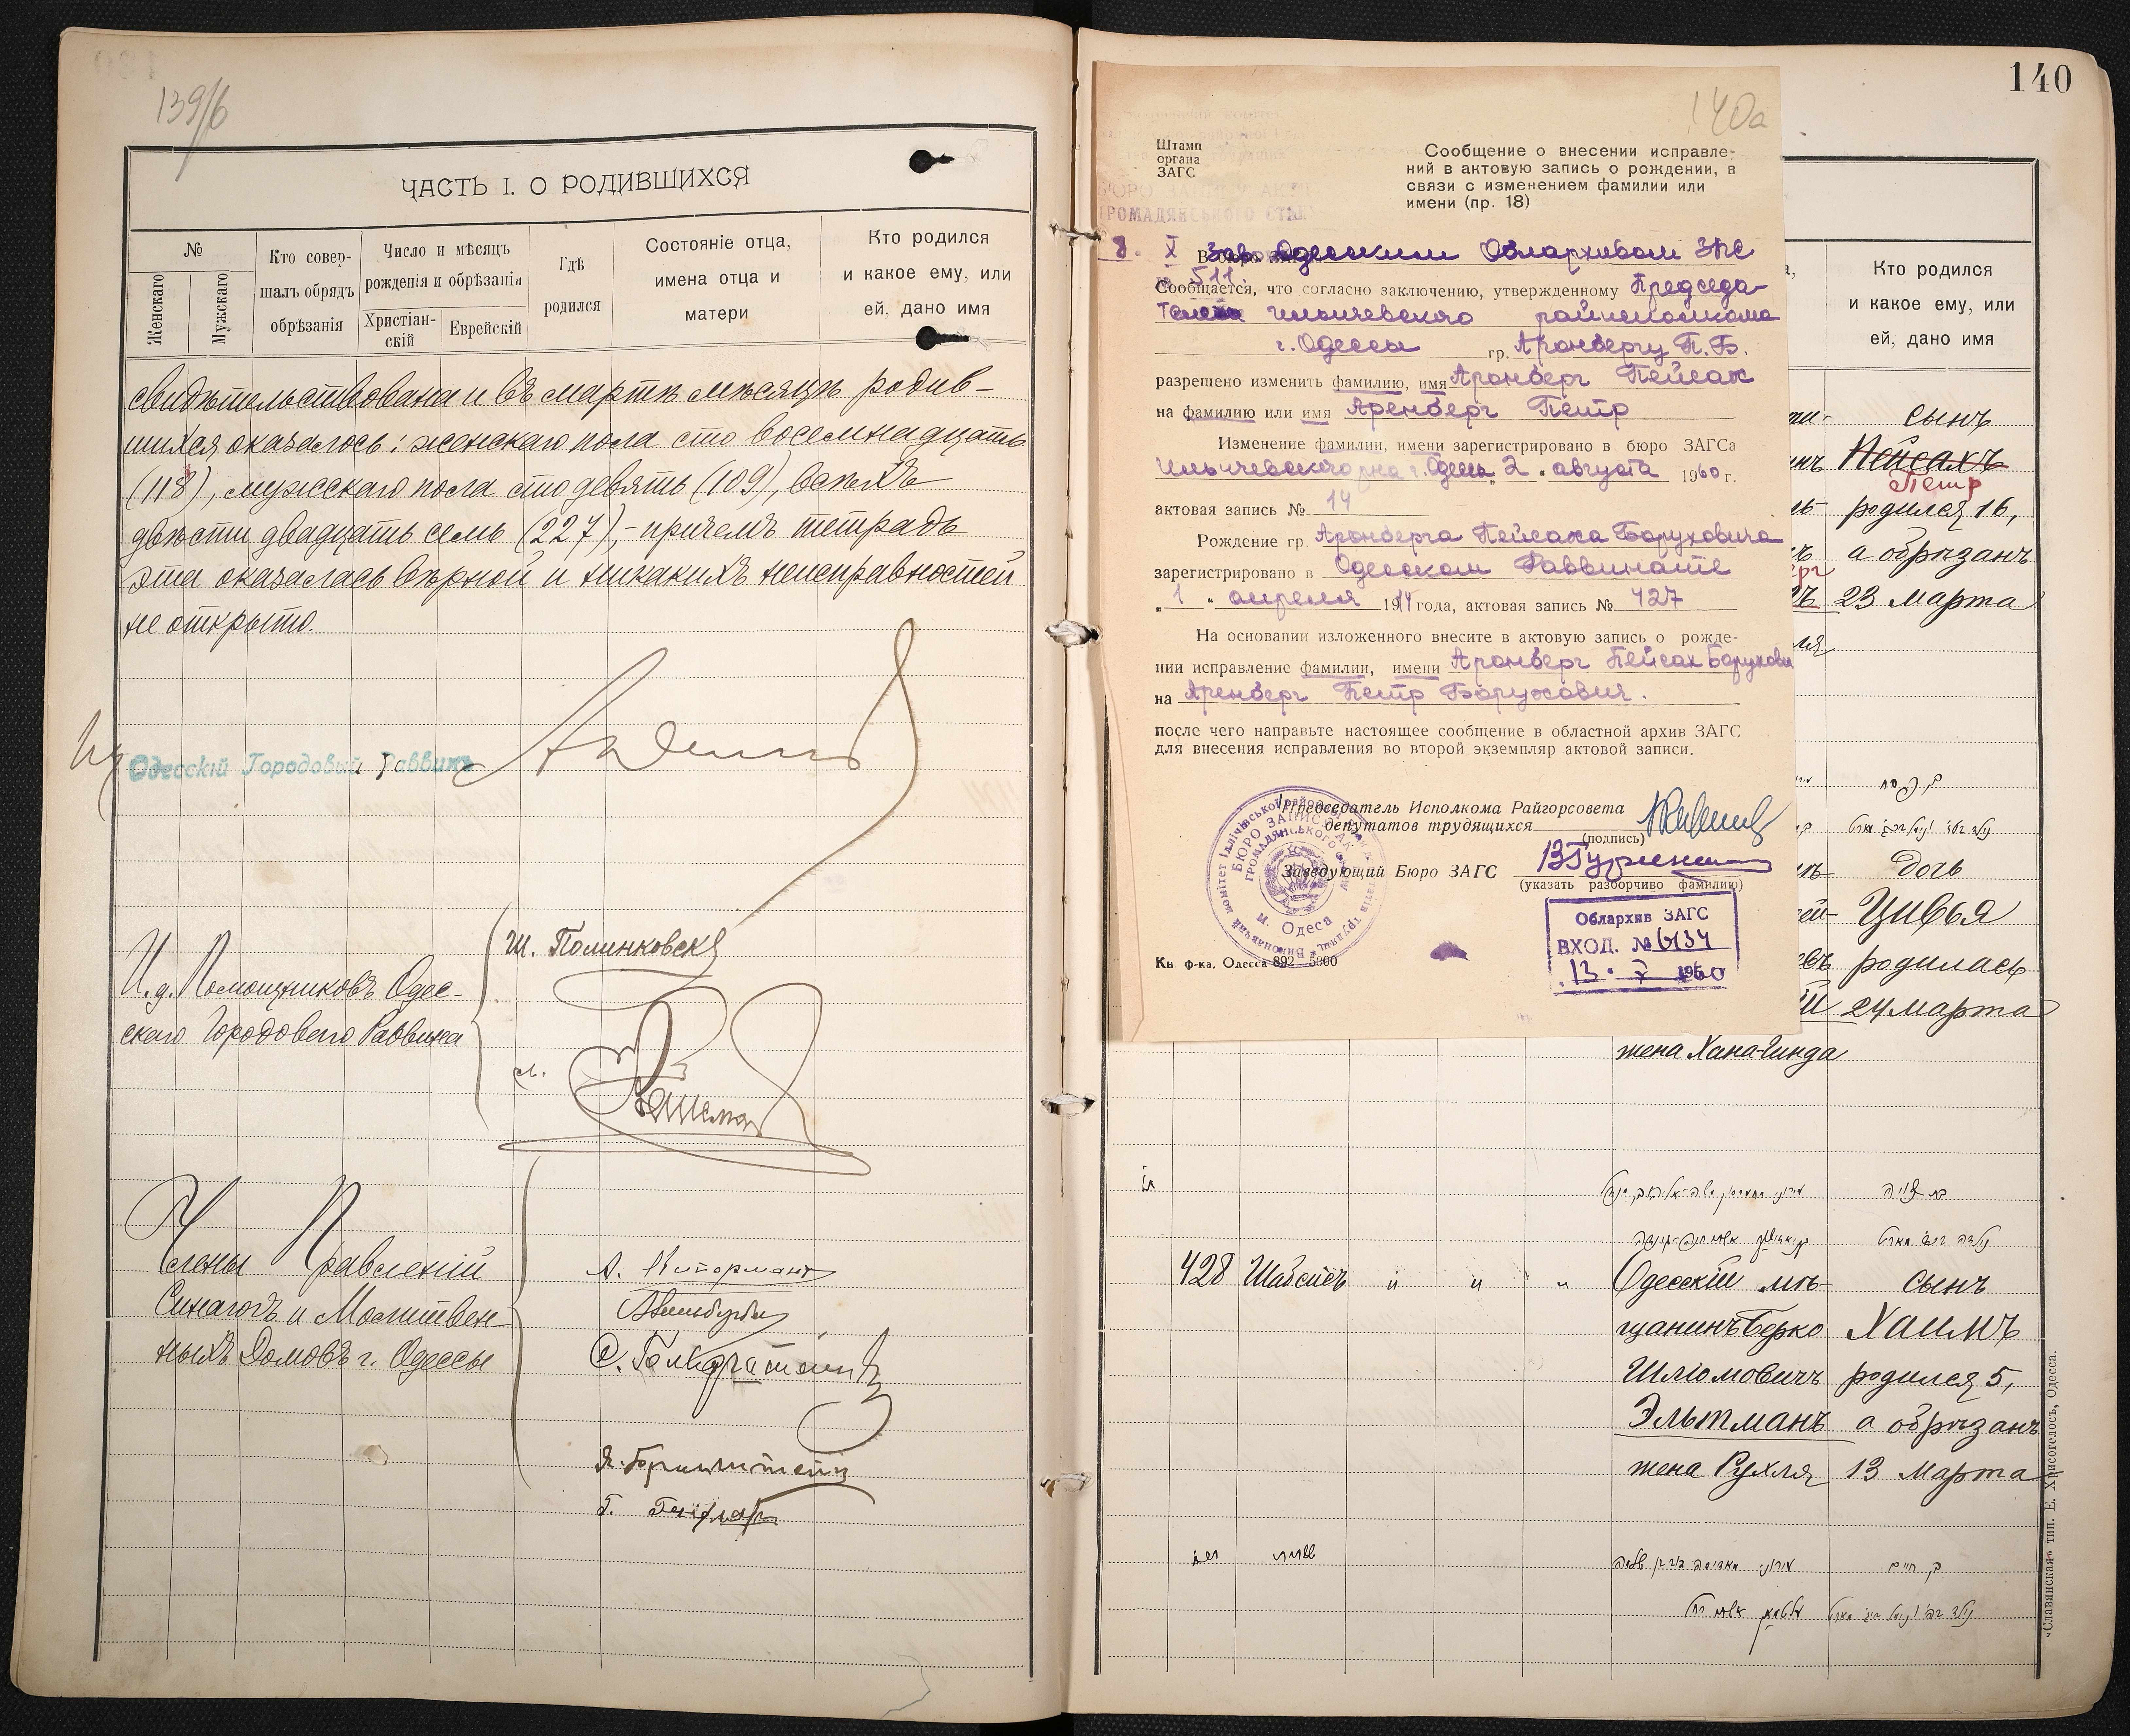 139/б
ЧАСТЬ I. О РОДИВШИХСЯ
№
Женскаго
Мужскаго
Кто совер-
шалъ обрядъ
обрѣзанія
Число и мѣсяцъ
рожденія и обрѣзанія
Христіан-
скій
Еврейскій
Гдѣ
родился
Состояніе отца,
имена отца и
матери
Кто родился
и какое ему, или
ей, дано имя
свидѣтельствована и въ мартѣ мѣсяцѣ родив-
шихся оказалось: женскаго пола сто восемнадцать
(118), мужскаго пола сто девять (109), всѣхъ
двѣсти двадцать семь (227), - причемъ тетрадь
эта оказалась вѣрной и никакихъ неисправностей
не открыто.
Одесскій Городовый Раввинъ
И. д. Помощниковъ Одес-
скаго Городового Раввина
Ш. Полинковск
Члены Правленій
Синагогъ и Молитвен-
ныхъ Домовъ г. Одессы
140
140а
Штамп
органа
ЗАГС
Сообщение о внесении исправле-
ний в актовую запись о рождении, в
связи с изменением фамилии или
имени (пр. 18)
8. X
511
Зав. Одесским Облархивом ЗАГС
Сообщается, что согласно заключению, утвержденному Председа-
теля Ильичевского райисполкома
г. Одессы гр. Аронбергу П. Б.
разрешено изменить фамилию, имя Аронберг Пейсах
на фамилию или имя Аренберг Петр
Изменение фамилии, имени зарегистрировано в бюро ЗАГСа
Ильичевского р-на г. Одессы „2“ августа 1960 г.
актовая запись № 14
Рождение гр. Аронберга Пейсаха Боруховича
зарегистрировано в Одесском Раввинате
„1“ апреля 1914 года, актовая запись № 427
На основании изложенного внесите в актовую запись о рожде-
нии исправление фамилии, имени Аронберг Пейсах Борухович
на Аренберг Петр Борухович.
после чего направьте настоящее сообщение в областной архив ЗАГС
для внесения исправления во второй экземпляр актовой записи.
Председатель Исполкома Райгорсовета
депутатов трудящихся
(подпись)
Заведующий Бюро ЗАГС
(указать разборчиво фамилию)
БЮРО ЗАПИСІВ АКТІВ
ГРОМАДЯНСЬКОГО СТАНУ
м. Одеса
Облархив ЗАГС
ВХОД. № 6134
13. X 1960
Кн. ф-ка. Одесса 892—5000
Кто родился
и какое ему, или
ей, дано имя
сынъ
Пейсахъ
Петр
родился 16,
а обрѣзанъ
23 марта
дочь
Цивья
родилась
24 марта
жена Хана-Гинда
428 Шабсисъ " " " Одесскій мѣ- сынъ
щанинъ Берко Хаимъ
Шліомовичъ родился 5,
Эльтманъ а обрѣзанъ
жена Рухля 13 марта
«Славянская» тип. Е. Хрисогелосъ, Одесса.